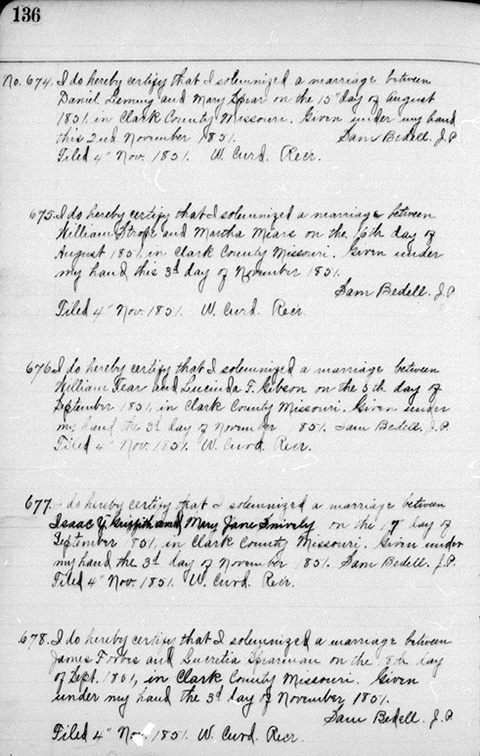 136
No. 674. I do hereby certify that I solemnized a marriage between
Daniel Leming and Mary Spear on the 15" day of August
1851, in Clark County Missouri. Given under my hand
this 2nd November 1851. Sam Bedell. J.P.
Filed 4" Nov. 1851. W. Curd. Recr.
675. I do hereby certify that I solemnized a marriage between
William and Martha Mears on the 16th day of
August 1851, in Clark County Missouri. Given under
my hand this 3d day of November 1851.
Sam Bedell. J.P.
Filed 4" Nov. 1851. W. Curd. Recr.
676 I do hereby certify that I solemnized a marriage between
William Fear and Lucinda T. Gibson on the 5th day of
September 1851, in Clark County Missouri. Given under
my hand the 3d day of November 1851. Sam Bedell. J.P.
Filed 4" Nov. 1851. W. Curd. Recr.
677. I do hereby certify that I solemnized a marriage between
Isaac Y. Griffith and Mary Jane Snively on the day of
September 1851, in Clark County Missouri. Given under
my hand the 3d day of November 1851. Sam Bedell. J.P.
Filed 4" Nov. 1851. W. Curd. Recr.
678. I do hereby certify that I solemnized a marriage between
James Forbis and Lucretia Spearman on the 18th day
of Sept. 1851, in Clark County Missouri. Given
under my hand the 3d day of November 1851.
Sam Bedell. J.P.
Filed 4" Nov. 1851. W. Curd. Recr.